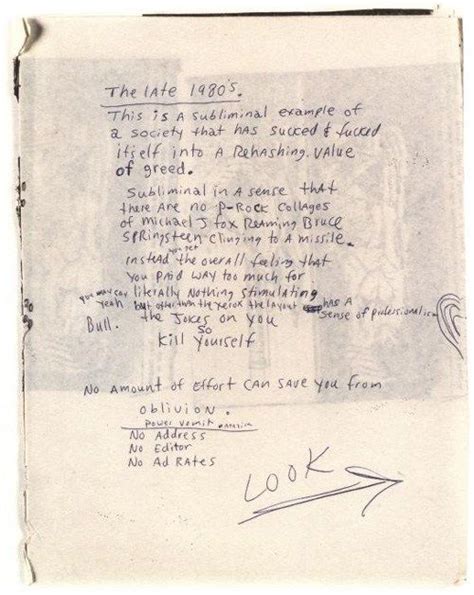 The late 1980's.
This is a subliminal example of
a society that has sucked & fucked
itself into a Rehashing value
of greed.
Subliminal in a sense that
there are no P-Rock collages
of Michael J. Fox Reaming Bruce
Springsteen clinging to a missile.
instead you get the overall feeling that
you paid way too much for
literally Nothing stimulating
you may say yeah but other than the xerox the layout has a sense of professionalism
Bull. the Jokes on you
so
Kill Yourself
No Amount of Effort can save you from
oblivion.
Power Vomit
No Address
No Editor
No Ad Rates
LOOK